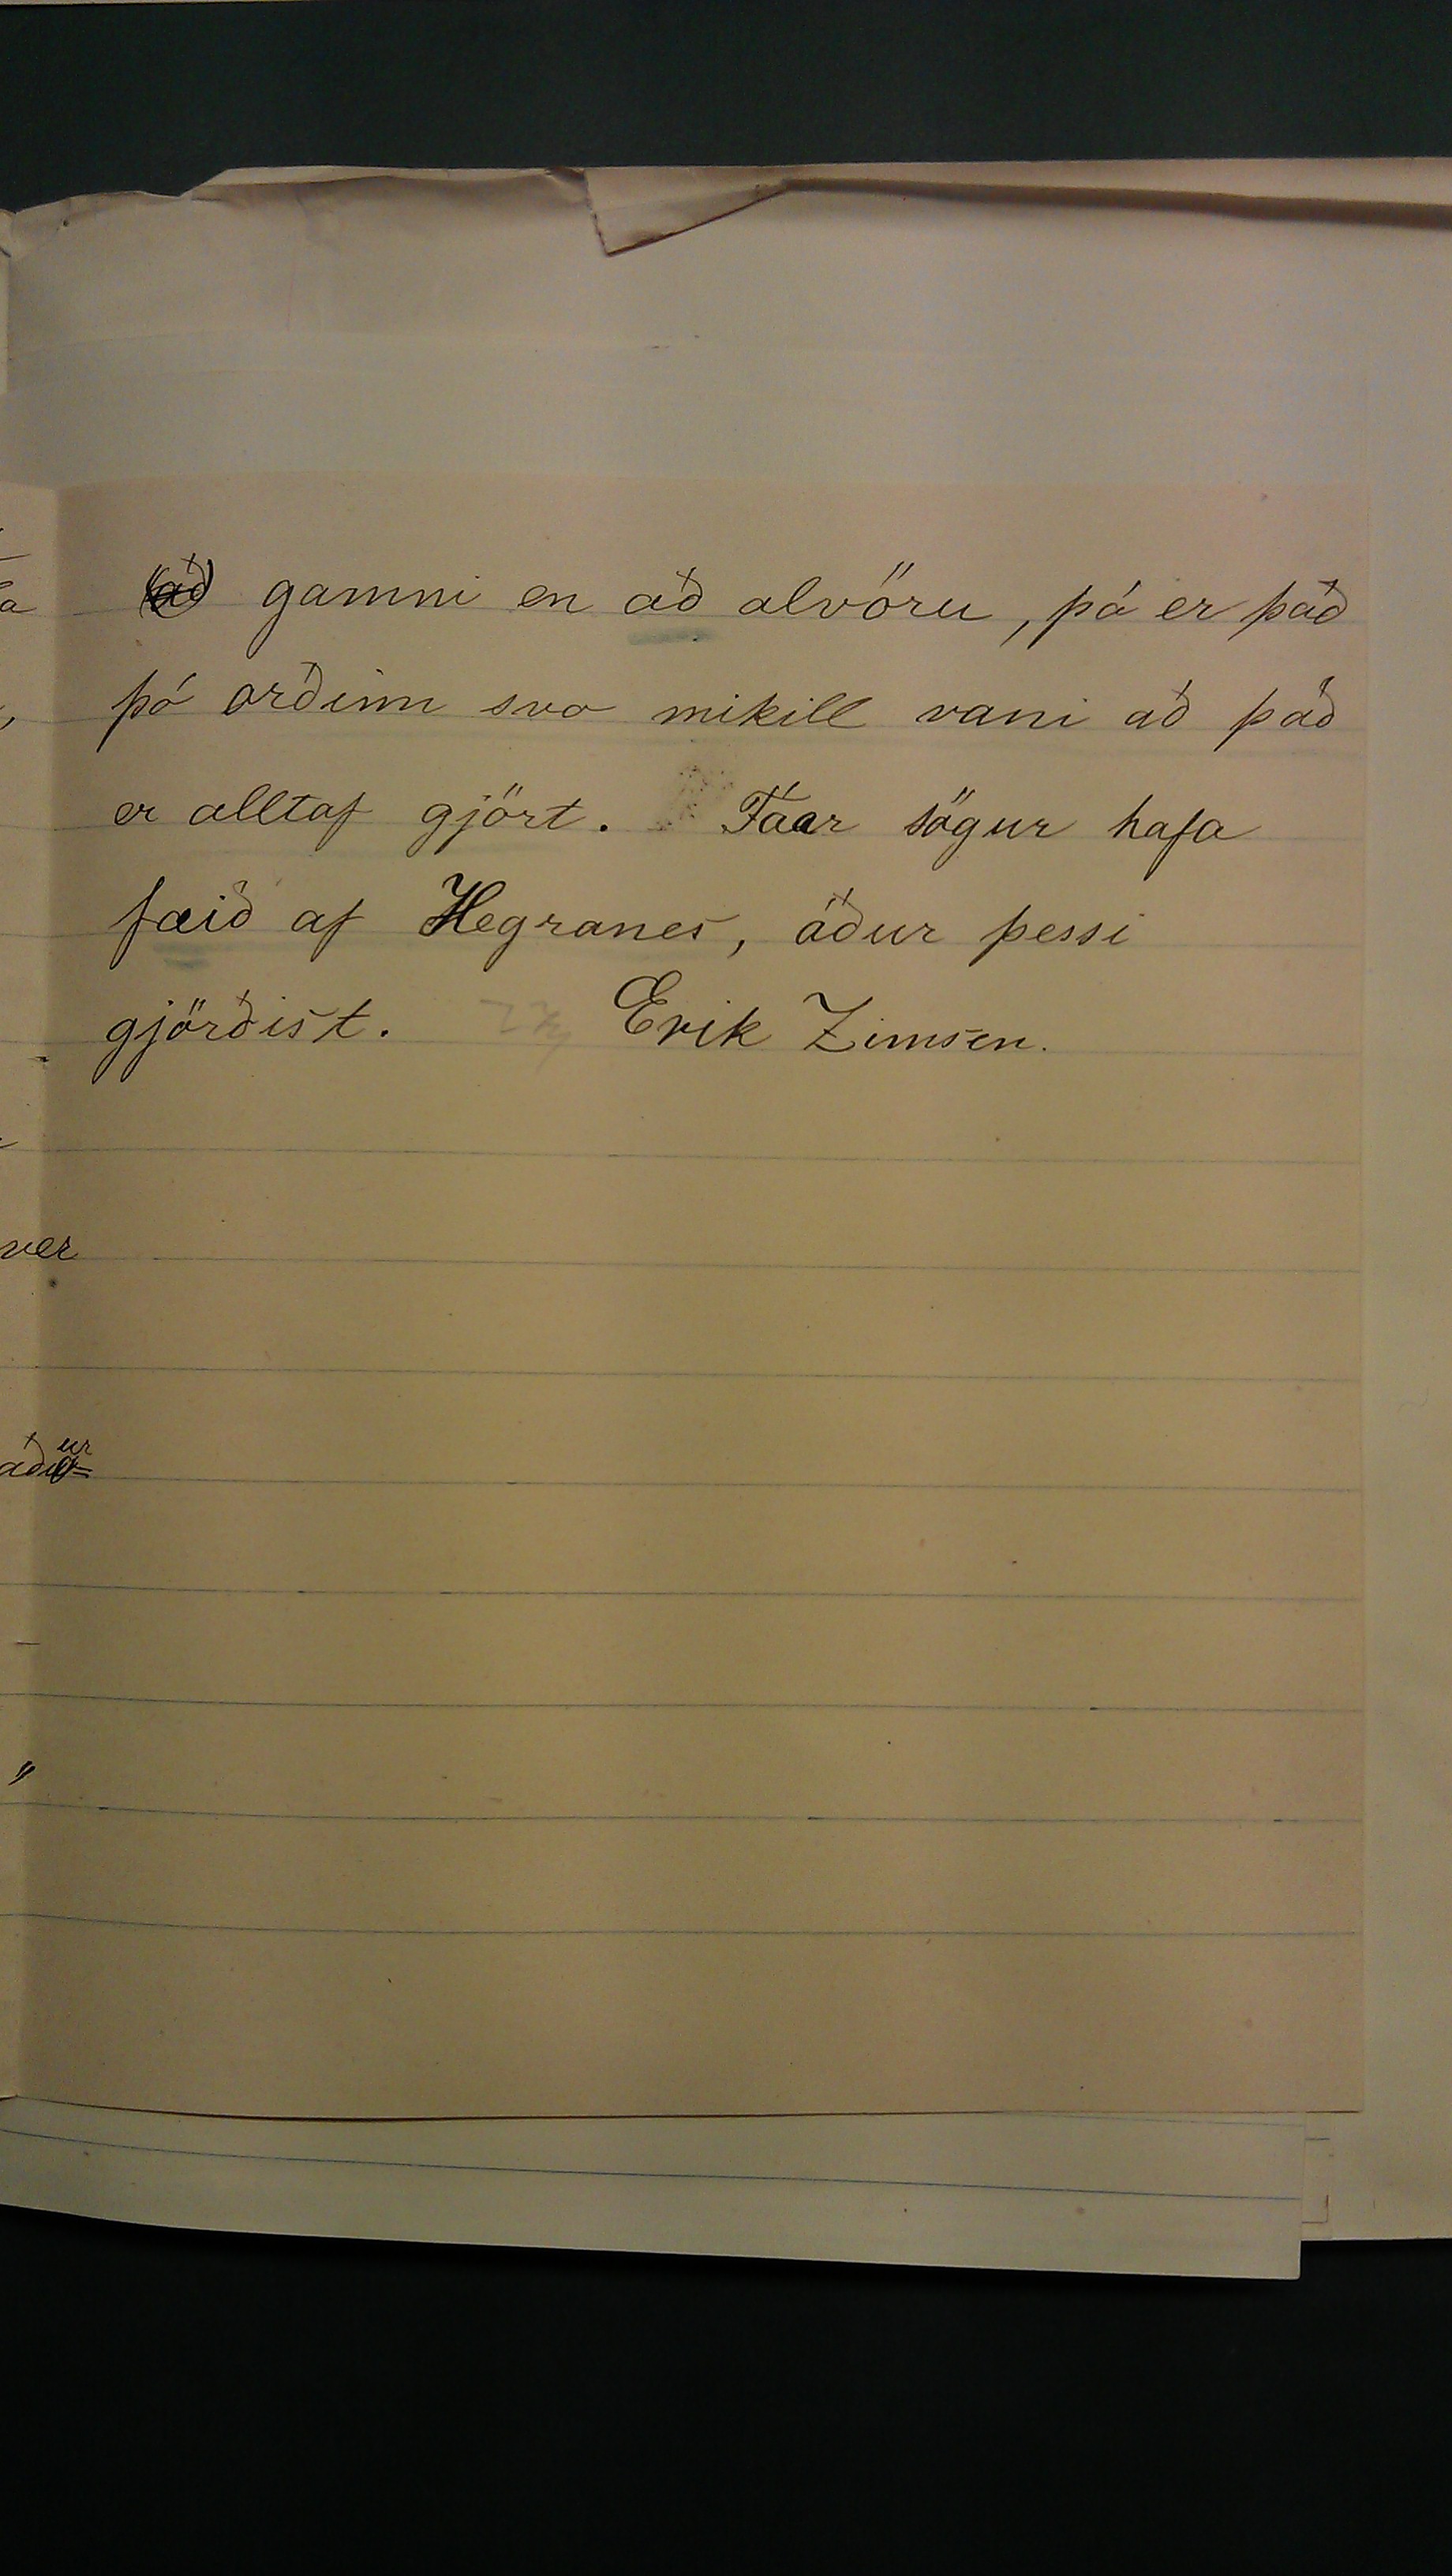 (að) gamni en að alvöru, þá er það
þó orðinn svo mikill vani að það
er alltaf gjört. Fáar sögur hafa
fæið af Hegranes, áður þessi
gjörðist. Erik Zimsen.
ver
ur